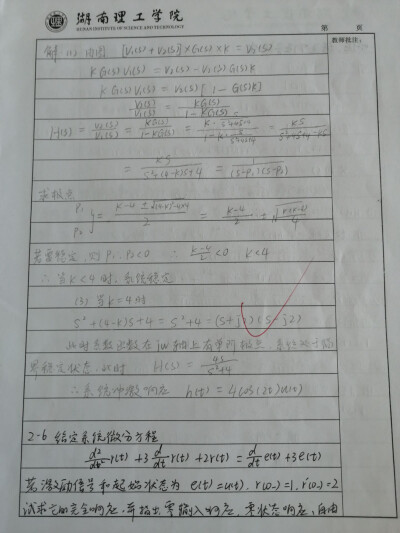 湖南理工学院
HUNAN INSTITUTE OF SCIENCE AND TECHNOLOGY
第 页
教师批注:
解 (1) 由图 [V₁(s)+V₂(s)]×G(s)×K = V₂(s)
KG(s)V₁(s) = V₂(s) - V₂(s)G(s)K
KG(s)V₁(s) = V₂(s)[1 - G(s)K]
V₂(s)/V₁(s) = KG(s)/(1-KG(s))
H(s) = V₂(s)/V₁(s) = KG(s)/(1-KG(s)) =
= KS/(S²+(4-K)S+4) =
求极点
P₁ P₂ } = = (K-4)/2 ±
若要稳定, 则 P₁, P₂<0 ∴ (K-4)/2<0 K<4
∴ 当K<4时, 系统稳定
(3) 当K=4时
S²+(4-K)S+4 = S²+4 = (S+j2)(S-j2)
此时系统函数在jw轴上有单阶极点, 系统处于临
界稳定状态, 此时 H(s) = 4S/(S²+4)
∴ 系统冲激响应 h(t) = 4cos(2t)u(t)
2-6 给定系统微分方程
d²/dt² r(t) + 3 d/dt r(t) + 2r(t) = d/dt e(t) + 3e(t)
若激励信号和起始状态为 e(t)=u(t), r(0₋)=1, r'(0₋)=2
试求它的完全响应, 并指出零输入响应, 零状态响应, 自由